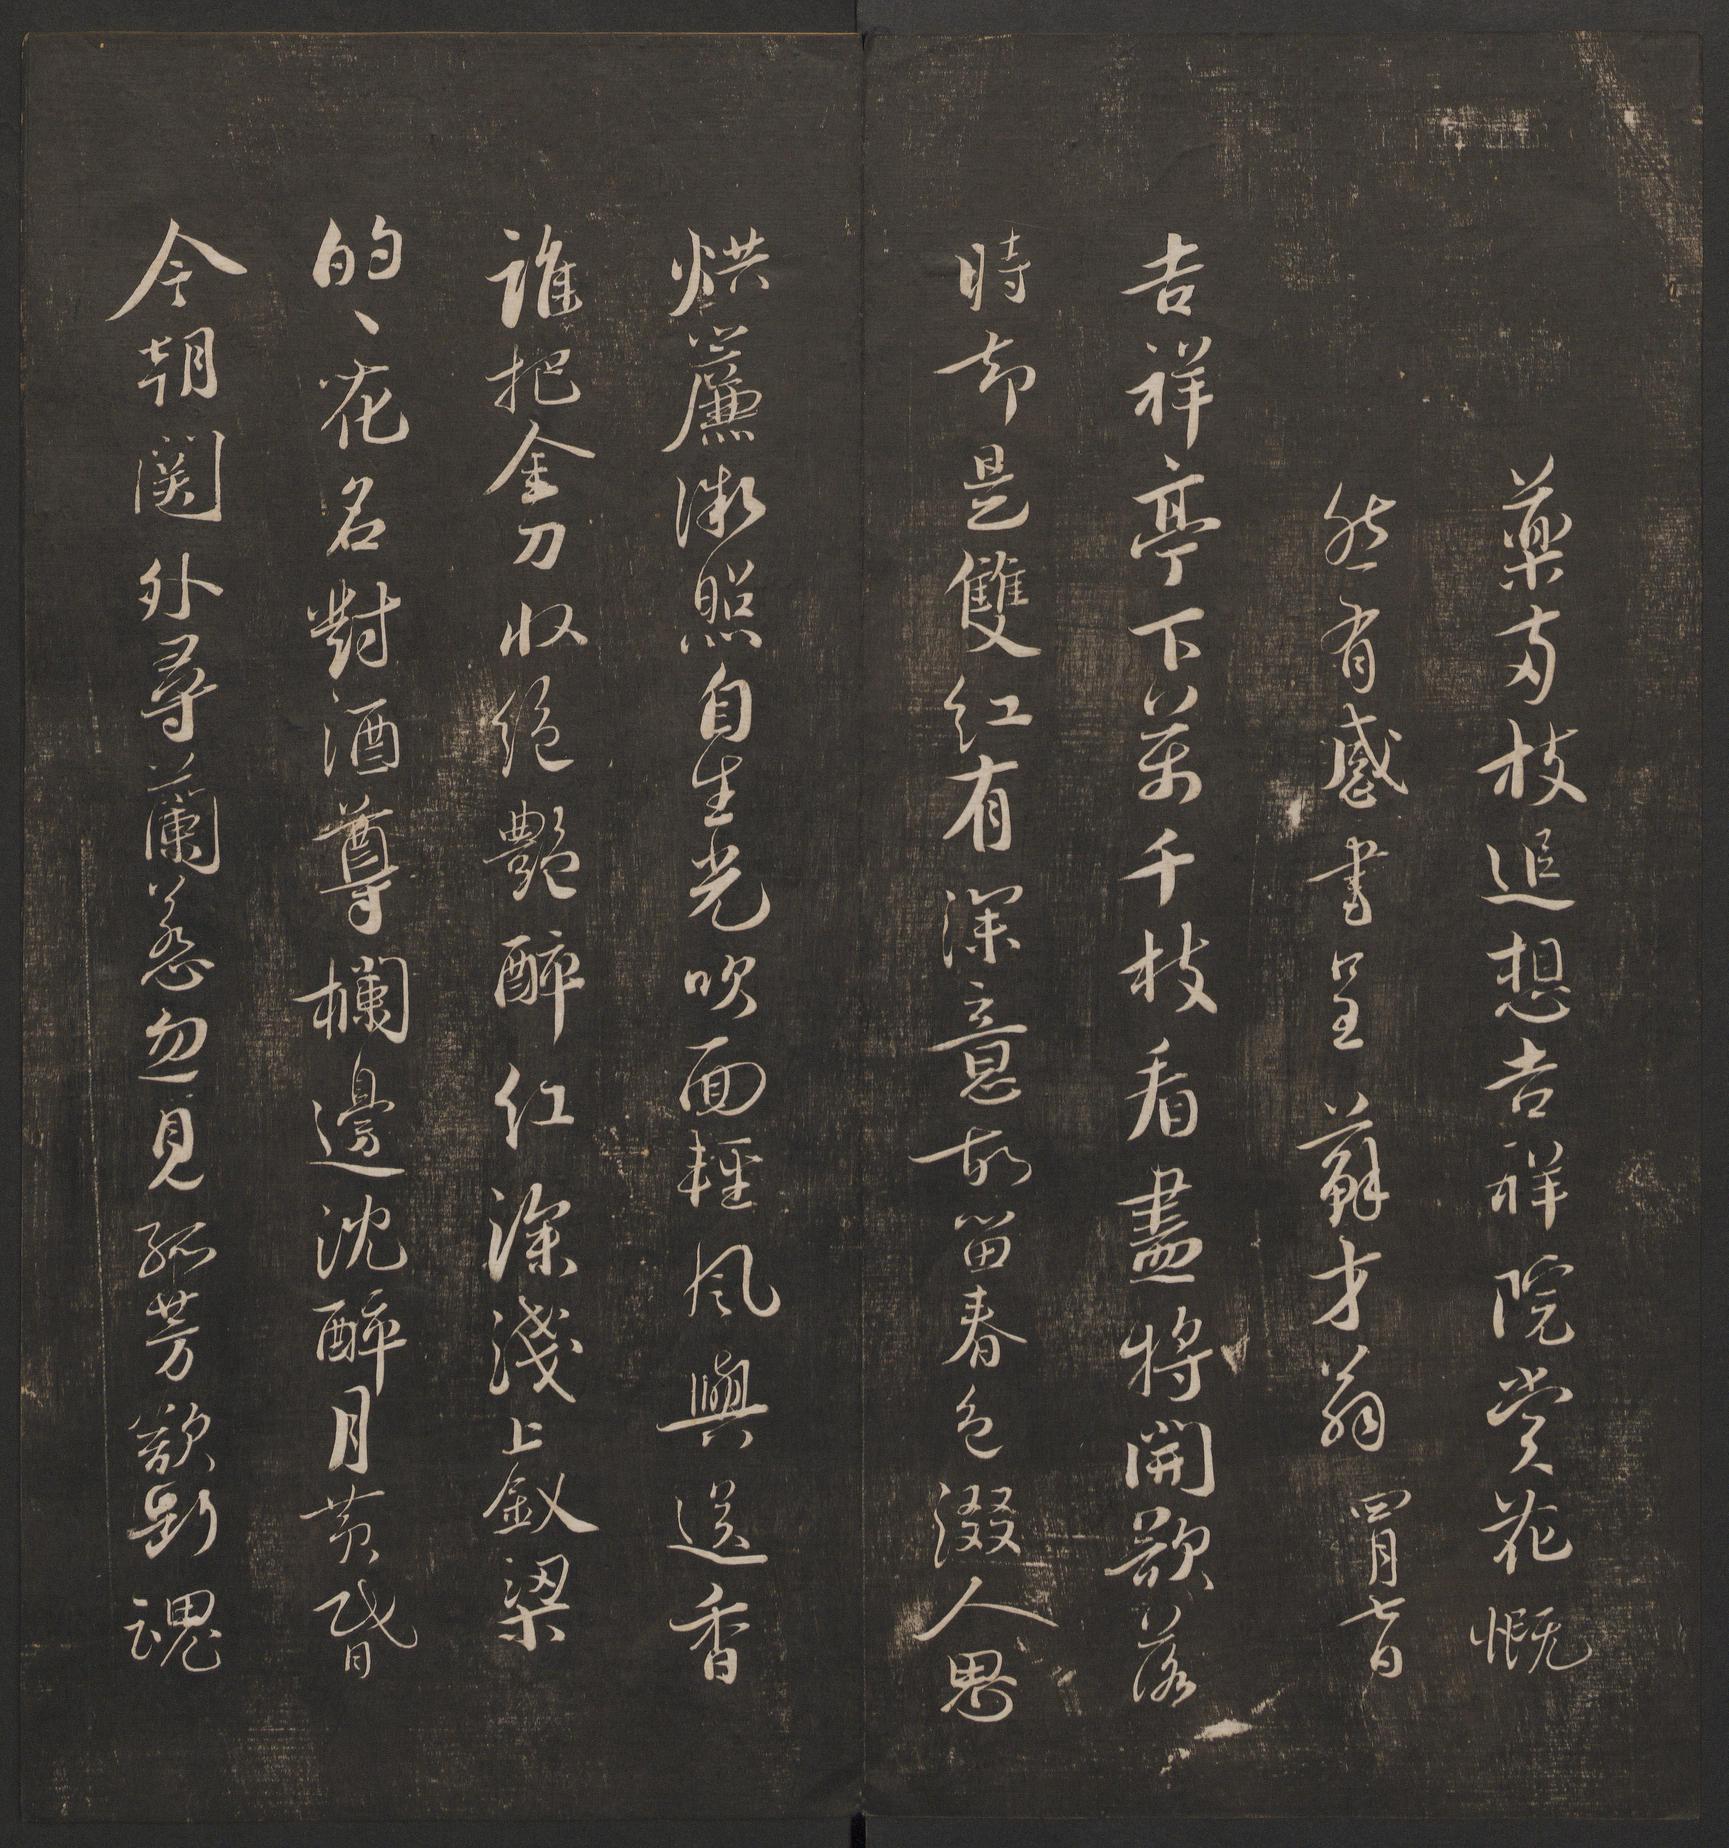 藥兩枝追想吉祥院賞花慨
然有感書呈蘇才翁 四月七日
吉祥亭下萬千枝看盡將開欲落
時却是雙紅有深意故留春色綴人思
烘簾微照自生光吹面輕風與送香
誰把金刀收絕艷醉紅深淺上釵梁
的、花名對酒尊欄邊沈醉月黃昏
今朝関外尋蘭蕊忽見孤芳欲斷魂